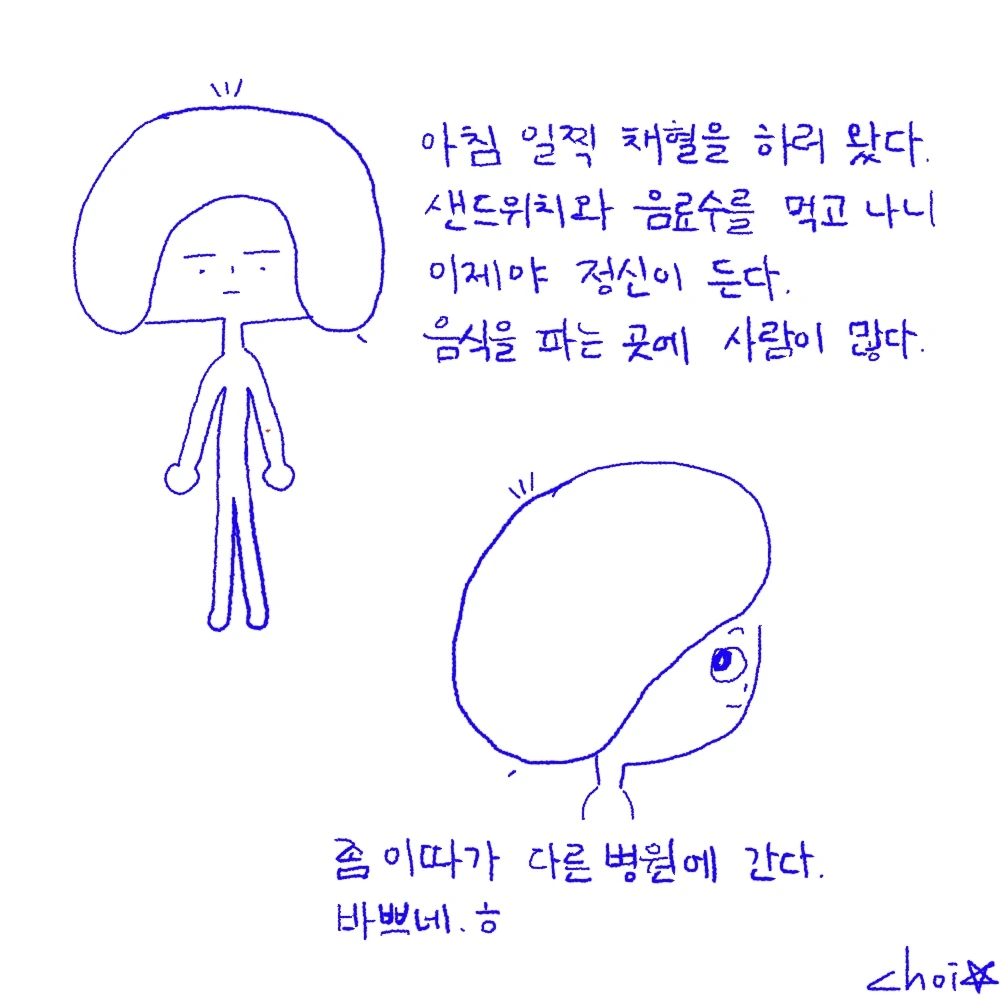 아침 일찍 채혈을 하러 왔다.
샌드위치와 음료수를 먹고 나니
이제야 정신이 든다.
음식을 파는 곳에 사람이 많다.
좀 이따가 다른 병원에 간다.
바쁘네.ㅎ
choi☆